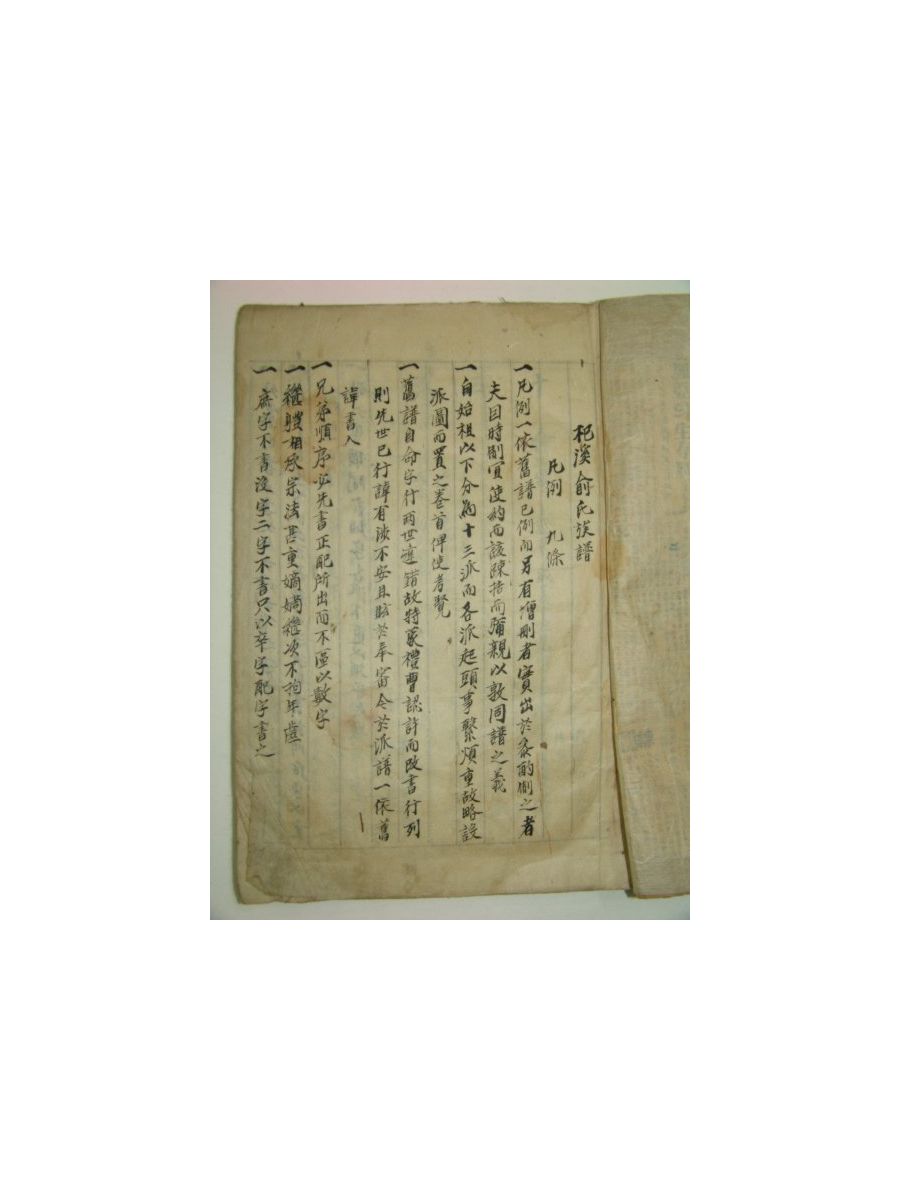 杞溪俞氏族譜
凡例 九條
一凡例一依舊譜已例而另有增刪者實出於參酌俐之者
夫因時制宜使約而該疎者而彌親以敦同譜之義
一自始祖以下分爲十三派而各派起頭事繁煩重故略設
派圖而置之卷首俾使考覽
一舊譜自命字行兩世違錯故特蒙禮曹認許而改書行列
則先世已行諱有涉不安且眩於奉審今於派譜一依舊
諱書入
一兄弟順序必先書正配所出而不區以數字
一繼體相承宗法甚重嫡嫡繼次不拘年歲
一庶字不書沒字二字不書只以卒字配字書之